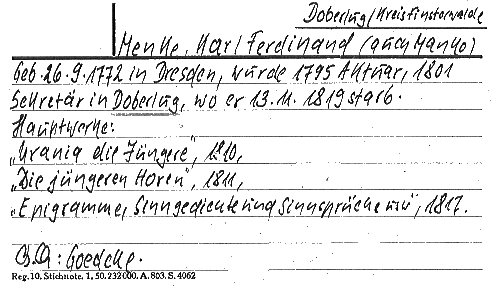 Doberlug/Kreis Finsterwalde
Menke, Karl Ferdinand (auch Manko)
Geb. 26.9.1772 in Dresden, wurde 1795 Aktuar, 1801
Sekretär in Doberlug, wo er 13.11.1819 starb.
Hauptwerke:
„Urania die Jüngere", 1810,
„Die jüngeren Horen", 1811,
„Epigramme, Sinngedichte und Sinnsprüche", 1817.
Goedeke.
Reg. 10. Stichnote. 1, 50. 232 000. A. 803. S. 4062